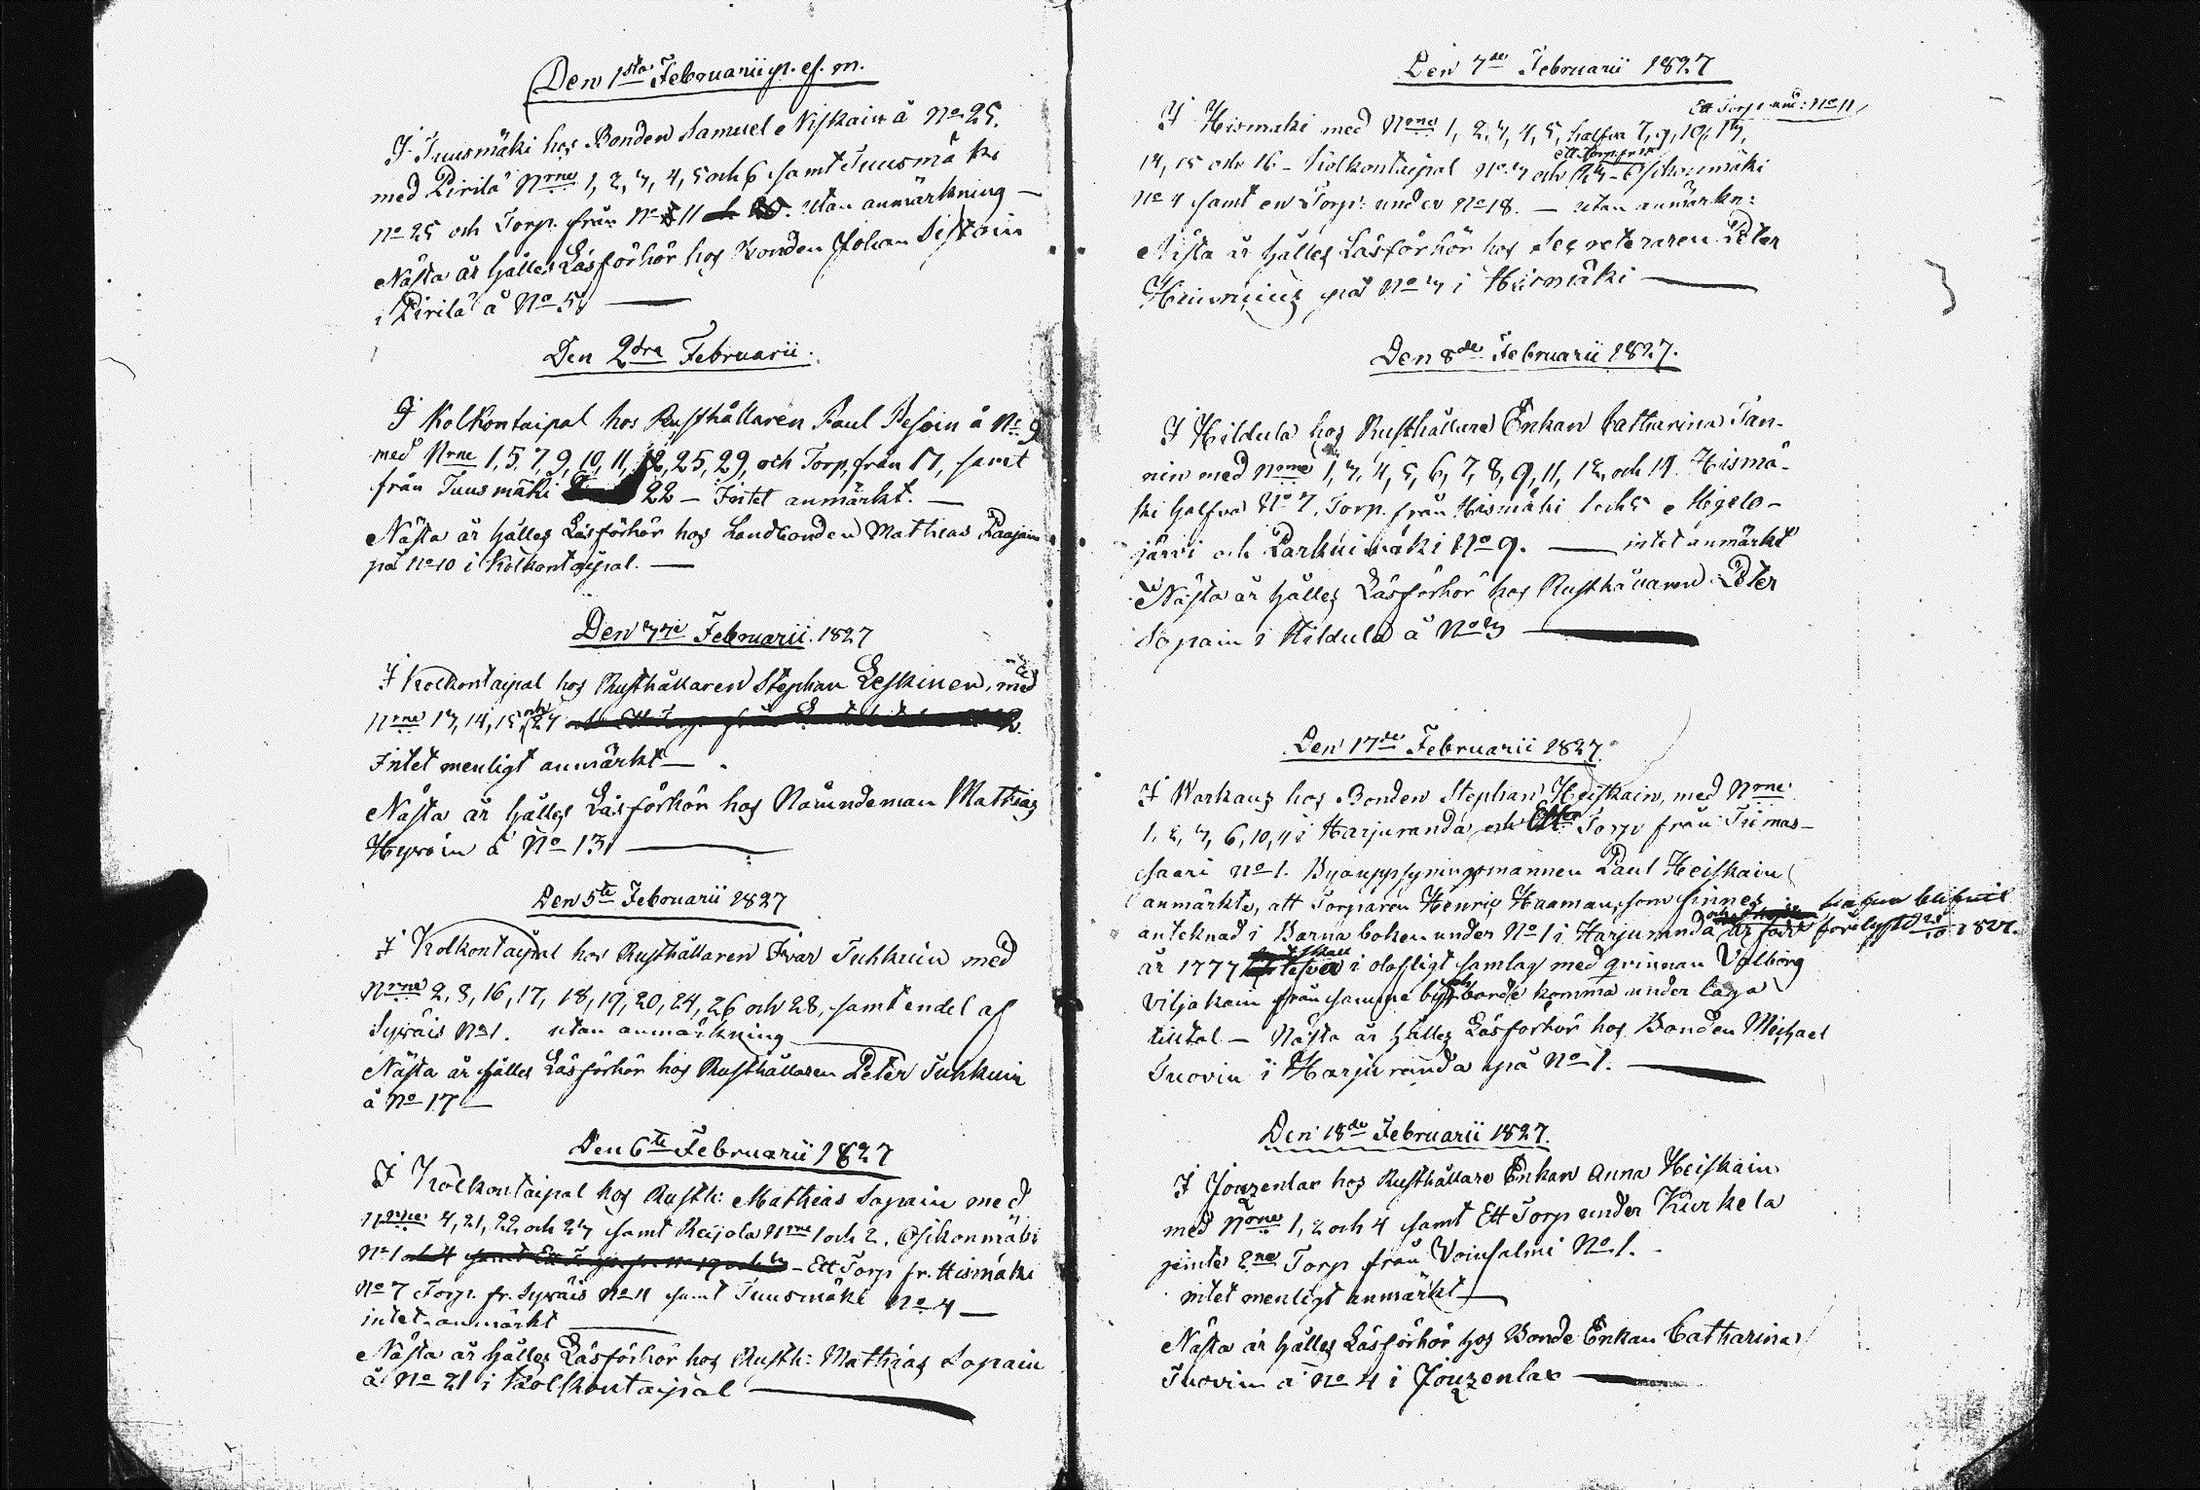 Den 1sta Februarii p. ef. m.
I Tuusmäki hos Bonden Samuel Niskain å No 25.
med Pirilä Nrne 1, 2, 3, 4, 5 och 6 samt Tuusmäki
No 25 och Torp. från No 11 utan anmärkning —
Nästa år hålles Läsförhör hos Bonden Johan Sistoin
i Pirilä å No 5 —
Den 2dra Februarii.
I Kolkontaipal hos Rusthållaren Paul Pesoin å No 9
med Nrne 1, 5, 7, 9, 10, 11, 12, 25, 29, och Torp, från 17, samt
från Tuusmäki 22 — Intet anmärkt. —
Nästa år hålles Läsförhör hos Landbonden Mathias Paajain
på No 10 i Kolkontaipal. —
Den 3je Februarii 1827
I Kolkontaipal hos Rusthållaren Stephan Leskinen, med
Nrne 13, 14, 15 och 27
Intet menligt anmärkt —
Nästa år hålles Läsförhör hos Mathias
å No 13 —
Den 5te Februarii 1827
I Kolkontaipal hos Rusthållaren Ivar Tuhkuin med
Nrne 2, 3, 16, 17, 18, 19, 20, 24, 26 och 28, samt endel af
Syväis No 1. utan anmärkning —
Nästa år hålles Läsförhör hos Rusthållaren Peter Tuhkuin
å No 17 —
Den 6te Februarii 1827
I Kolkontaipal hos Rusth: Mathias Sopain med
Nrne 4, 21, 22 och 23 samt Reijola Nrne 1 och 2. Osikonmäki
No 1 — Ett Torp fr. Hismäki
No 7 Torp. fr. Syväis No 11 samt Tuusmäki No 4 —
intet anmärkt —
Nästa år hålles Läsförhör hos Rusth: Mathias Sopain
å No 21 i Kolkontaipal —
Den 7de Februarii 1827
Ett Torp und: No 11
I Hismäki med Nrne 1, 2, 3, 4, 5, halfva 7, 9, 10, 13,
14, 15 och 16 — Kolkontaipal No 3 och Osikonmäki
No 4 samt en Torp: under No 18. — utan anmärkn:
Nästa år hålles Läsförhör hos Secreteraren Peter
Heinricius på No 3 i Hismäki —
Den 8de Februarii 1827.
I Hildula hos Rusthållare Enkan Catharina Tan-
nin med Nrne 1, 3, 4, 5, 6, 7, 8, 9, 11, 12, och 14. Hismä-
ki halfva No 7, Torp. från Hismäki 1 och 5
järvi och No 9. — intet anmärkt
Nästa år hålles Läsförhör hos Rusthållaren Peter
Sopain i Hildula å No 3 —
Den 17de Februarii 1827.
I Warkaus hos Bonden Stephan Heiskain, med Nrne
1, 2, 3, 6, 10, 11 i Harjuranda och Torp från Tiimas-
saari No 1. Byauppsyningsmannen Paul Heiskain
anmärkte, att Torparen Henric Haaman, som finnes
anteknad i Barna boken under No 1 i Harjuranda
år 1777 skall i olofligt samlag med qvinnan Valborg
Viljakain från samma by, borde komma under laga
tilltal — Nästa år hålles Läsförhör hos Bonden Michael
Tuovin i Harjuranda på No 1. —
Den 18de Februarii 1827.
I Jouzenlax hos Rusthållare Enkan Anna Heiskain
med Nrne 1, 2 och 4 samt Ett Torp under Kurkela
jemte 2ne Torp från Voinsalmi No 1. —
intet menligt anmärkt —
Nästa år hålles Läsförhör hos Bonde Enkan Catharina
Tuovin å No 4 i Jouzenlax —